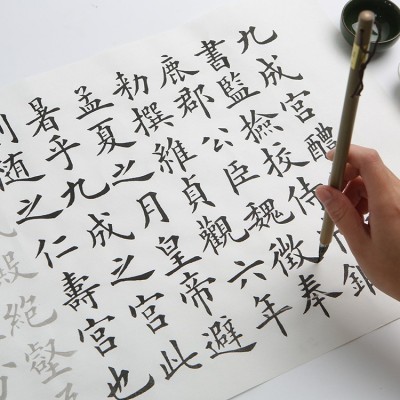 九成宮醴
書監撿校侍
鹿郡公臣魏徵奉
勅撰維貞觀六年
孟夏之月皇帝避
暑乎九成之宮此
則随之仁壽宮也
殿絕壑